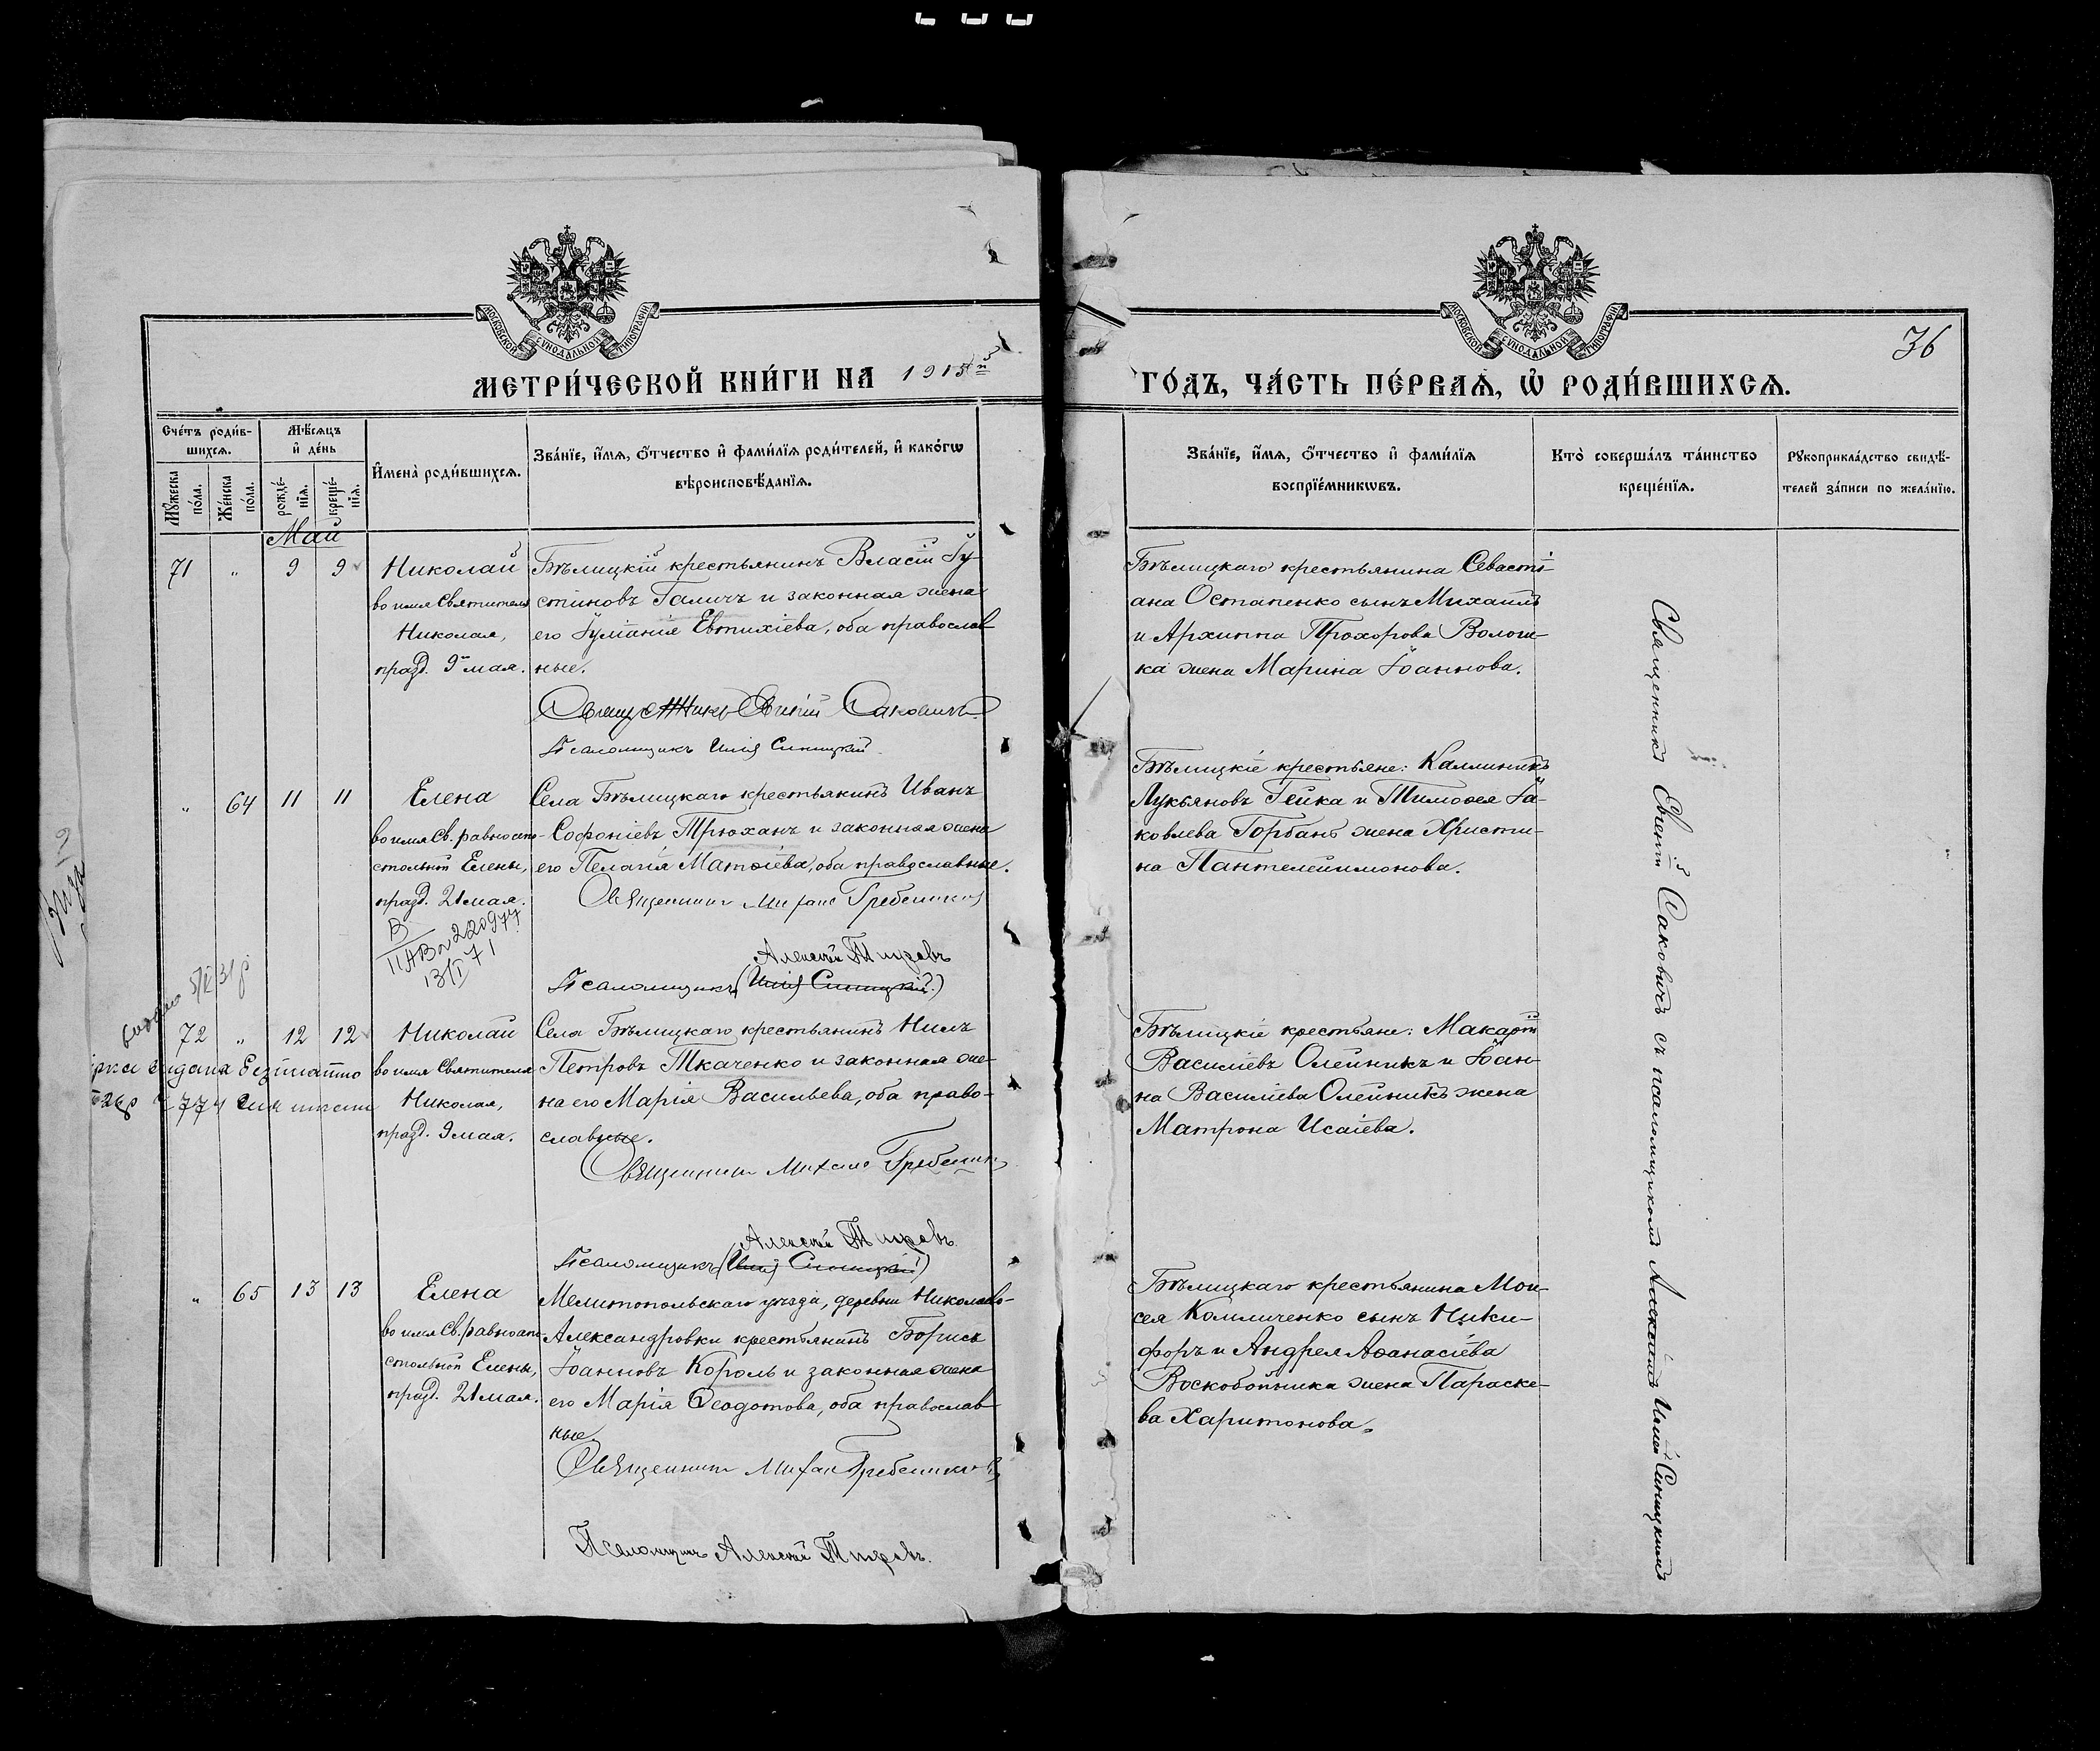 МОСКОВСКОЙ СУНОДАЛЬНОЙ ТИПОГРАФІИ
МОСКОВСКОЙ СУНОДАЛЬНОЙ ТИПОГРАФІИ
36
МЕТРИ́ЧЕСКОЙ КНИ́ГИ НА 1915й
ГО́ДЪ, ЧА́СТЬ ПЕ́РВАѦ, Ѡ҆ РОДИ́ВШИХСѦ.
Сче́тъ роди́в-
шихсѧ.
Мѣ́сѧцъ
и҆ де́нь
Мꙋ́жеска
по́ла.
Же́нска
по́ла.
рожде́-
нїѧ.
креще́-
нїѧ.
И҆мена̀ роди́вшихсѧ.
Зва́нїе, и҆́мѧ, о҆́тчество и҆ фами́лїѧ роди́телей, и҆ како́гѡ
вѣроисповѣ́данїѧ.
Зва́нїе, и҆́мѧ, о҆́тчество и҆ фами́лїѧ
воспрїе́мникѡвъ.
Кто̀ соверша́лъ та́инство
креще́нїѧ.
Рꙋкоприкла́дство свидѣ́-
телей за́писи по жела́нїю.
Май
71 „ 9 9
Николай
во имя Святителя
Николая,
празд. 9 мая.
Бѣлицкій крестьянинъ Власій Іу-
стиновъ Галичъ и законная жена
его Іуліанія Евтихіева, оба православ-
ные.
Священникъ Евѳимій Саковичъ
Псаломщикъ Илія Синицкій
Бѣлицкаго крестьянина Севасті-
ана Остапенко сынъ Михаилъ
и Архиппа Прохорова Волоши-
ка жена Марина Іоаннова.
„ 64 11 11
Елена
во имя Св. равноапо-
стольной Елены,
празд. 21 мая.
В
II АВ № 220977
13/I 71
Села Бѣлицкаго крестьянинъ Иванъ
Софоніевъ Трюханъ и законная жена
его Пелагія Матѳіева, оба православные.
Священникъ Михаил Гребенник
Алексій Титовъ
Псаломщикъ (Илія Синицкій)
Бѣлицкіе крестьяне: Каллиникъ
Лукьяновъ Гейка и Тимоѳея Іа-
ковлева Горбань жена Христи-
на Пантелеимонова.
72 „ 12 12
Николай
во имя Святителя
Николая,
празд. 9 мая.
Села Бѣлицкаго крестьянинъ Нилъ
Петровъ Ткаченко и законная же-
на его Марія Васильева, оба право-
славные.
Священник Михаил Гребенник
Алексій Титовъ
Псаломщикъ (Илія Синицкій)
Бѣлицкіе крестьяне: Макарій
Василіевъ Олейникъ и Іоан-
на Василіева Олейникъ жена
Матрона Исаіева.
„ 65 13 13
Елена
во имя Св. равноапо-
стольной Елены,
празд. 21 мая.
Мелитопольскаго уѣзда, деревни Николаево-
Александровки крестьянинъ Борисъ
Іоанновъ Король и законная жена
его Марія Ѳеодотова, оба православ-
ные.
Священник Михаил Гребенников
Псаломщикъ Алексій Титовъ.
Бѣлицкаго крестьянина Мои-
сея Комличенко сынъ Ники-
форъ и Андрея Аѳанасіева
Воскобойника жена Параске-
ва Харитонова.
Священникъ Евѳимій Саковичъ съ псаломщикомъ Иліей Синицкимъ